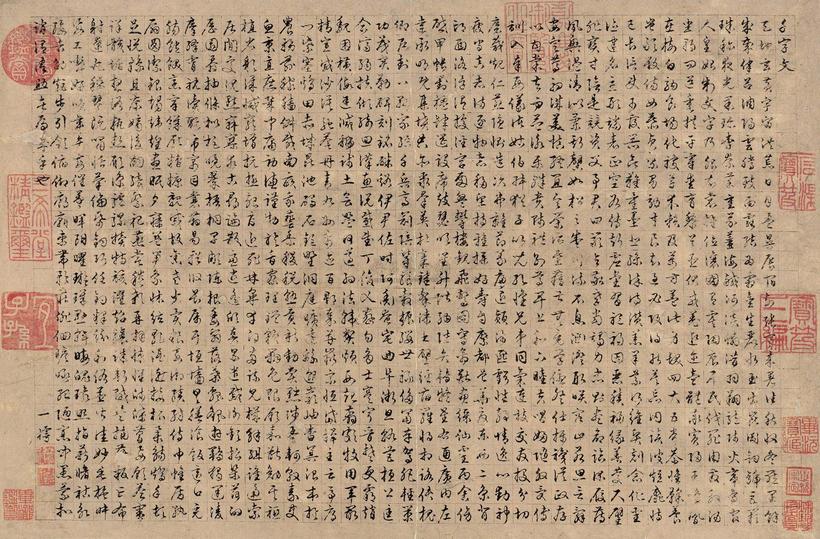 千字文
天地玄黄宇宙洪荒日月盈昃辰宿列張寒来暑往秋收冬藏閏餘
成歲律吕調陽雲騰致雨露結為霜金生麗水玉出崑岡劍號巨闕
珠稱夜光果珍李柰菜重芥薑海鹹河淡鱗潛羽翔龍師火帝鳥官
人皇始制文字乃服衣裳推位讓國有虞陶唐弔民伐罪周發殷湯
坐朝問道垂拱平章愛育黎首臣伏戎羌遐邇壹體率賓歸王鳴鳳
在樹白駒食場化被草木賴及萬方蓋此身髮四大五常恭惟鞠養
豈敢毀傷女慕貞潔男效才良知過必改得能莫忘罔談彼短靡恃
己長信使可覆器欲難量墨悲絲染詩讚羔羊景行維賢克念作聖
德建名立形端表正空谷傳聲虛堂習聽禍因惡積福緣善慶尺璧
非寶寸陰是競資父事君曰嚴與敬孝當竭力忠則盡命臨深履薄
夙興溫凊似蘭斯馨如松之盛川流不息淵澄取暎容止若思言辭
安定篤初誠美慎終宜令榮業所基籍甚無竟學優登仕攝職從政存
以甘棠去而益詠樂殊貴賤禮別尊卑上和下睦夫唱婦隨外受傅
訓入奉母儀諸姑伯叔猶子比兒孔懷兄弟同氣連枝交友投分切
磨箴規仁慈隱惻造次弗離節義廉退顛沛匪虧性靜情逸心動神
疲守真志滿逐物意移堅持雅操好爵自縻都邑華夏東西二京背
邙面洛浮渭據涇宮殿盤鬱樓觀飛驚圖寫禽獸畫綵仙靈丙舍傍
啟甲帳對楹肆筵設席鼓瑟吹笙升階納陛弁轉疑星右通廣內左
達承明既集墳典亦聚群英杜稿鍾隸漆書壁經府羅將相路俠槐
卿戶封八縣家給千兵高冠陪輦驅轂振纓世祿侈富車駕肥輕策
功茂實勒碑刻銘磻溪伊尹佐時阿衡奄宅曲阜微旦孰營桓公匡
合濟弱扶傾綺迴漢惠說感武丁俊乂密勿多士寔寧晉楚更霸趙
魏困橫假途滅虢踐土會盟何遵約法韓弊煩刑起翦頗牧用軍最
精宣威沙漠馳譽丹青九州禹跡百郡秦并嶽宗恒岱禪主云亭
塞雞田赤城昆池碣石鉅野洞庭曠遠緜邈巖岫杳冥治本於
農務茲稼穡俶載南畝我藝黍稷稅熟貢新勸賞黜陟孟軻敦素史
魚秉直庶幾中庸勞謙謹敕聆音察理鑑貌辨色貽厥嘉猷勉其祗
植省躬譏誡寵增抗極殆辱近恥林皋幸即兩疏見機解組誰逼索
居閑處沉默寂寥求古尋論散慮逍遙欣奏累遣慼謝歡招渠荷的
歷園莽抽條枇杷晚翠梧桐早凋陳根委翳落葉飄颻遊鵾獨運凌
摩絳霄耽讀翫市寓目囊箱易輶攸畏屬耳垣牆具膳飡飯適口充
腸飽飫烹宰飢厭糟糠親戚故舊老少異糧妾御績紡侍巾帷房紈
扇圓潔銀燭煒煌晝眠夕寐藍筍象牀絃歌酒讌接杯舉觴矯手頓
足悅豫且康嫡後嗣續祭祀烝嘗稽顙再拜悚懼恐惶牋牒簡要顧答審
詳骸垢想浴執熱願涼驢騾犢特駭躍超驤誅斬賊盜捕獲叛亡布
射遼丸嵇琴阮嘯恬筆倫紙鈞巧任釣釋紛利俗並皆佳妙毛施淑
姿工顰妍笑年矢每催曦暉朗曜璇璣懸斡晦魄環照指薪脩祜永
綏吉劭矩步引領俯仰廊廟束帶矜莊徘徊瞻眺孤陋寡聞愚蒙等
誚謂語助者焉哉乎也